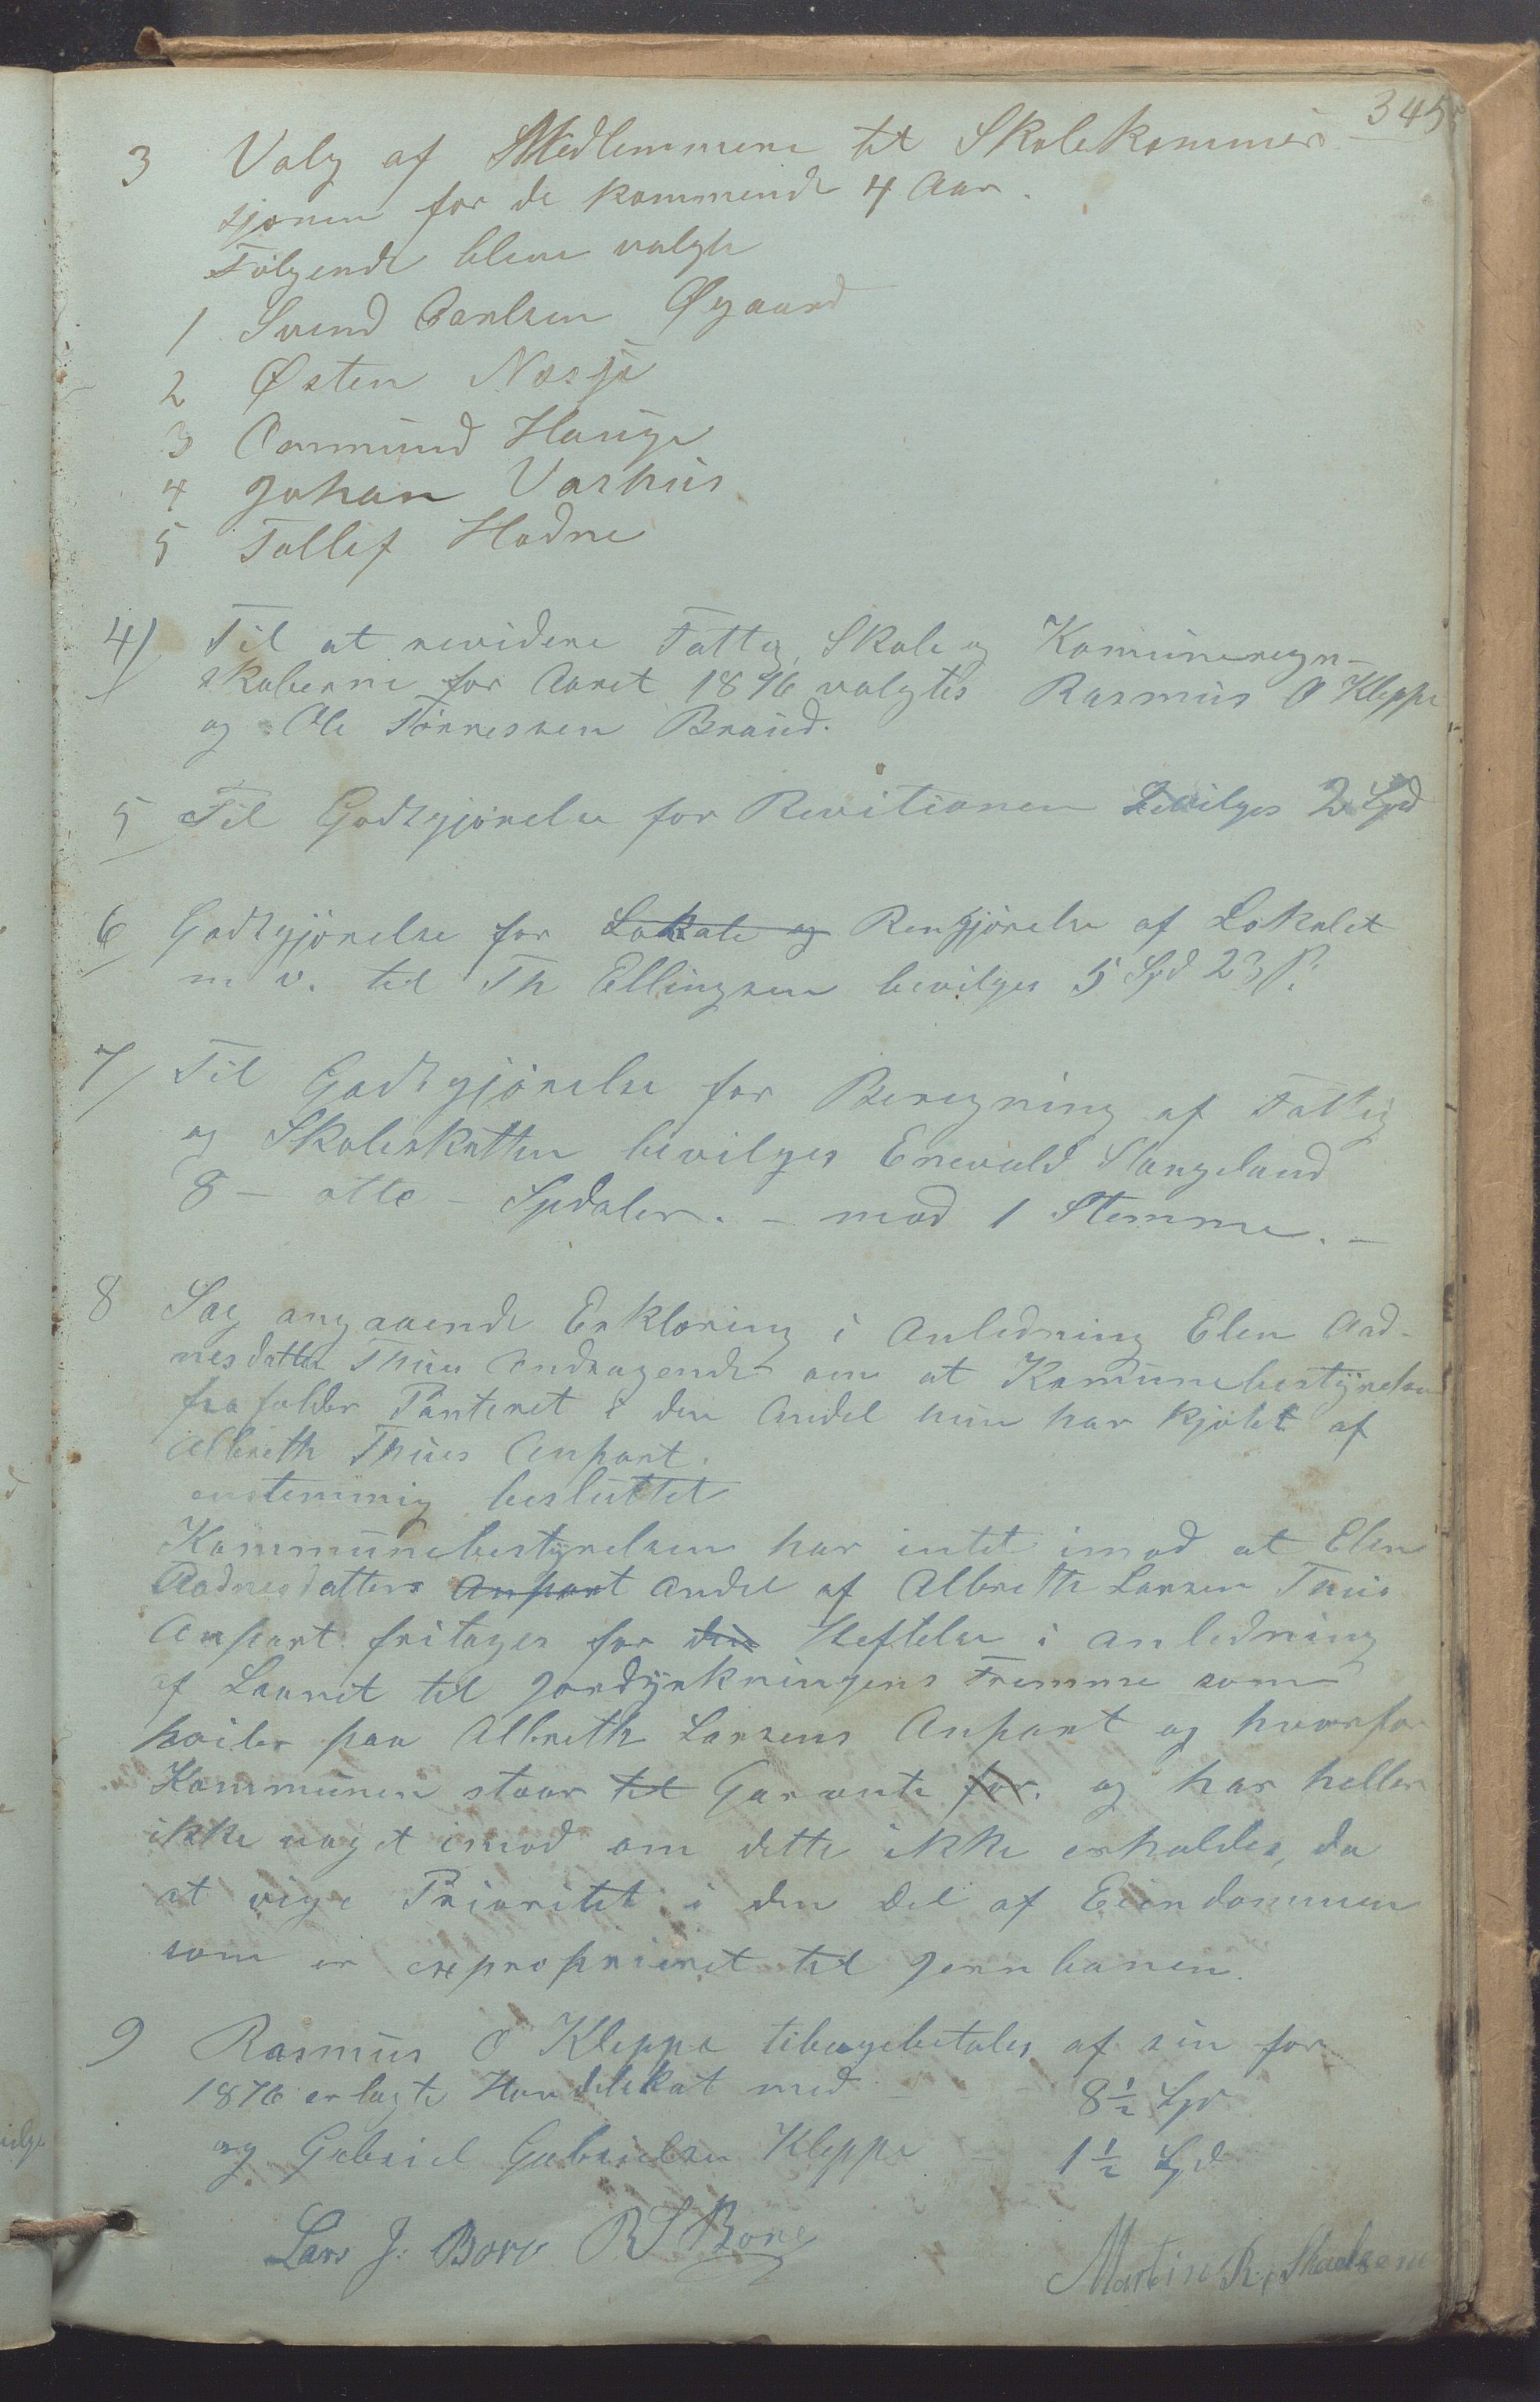 345
3 Valg af Medlemmene til Skolekommis-
sjonen for de kommende 4 Aar.
Følgende bleve valgte
1 Svend Carlsen Øgaard
2 Østen Nøsje
3 Ommund Hauge
4 Johan Vashus
5 Tollef Hodne
4/ Til at revidere Fattig, Skole og Komuneregn-
skaberne for Aaret 1876 valgtes Rasmus O Kleppe
og Ole Tønnessen Braud.
5 Til Godtgjörelse for Revitionen bevilges 2 Spd
6 Godtgjörelse for Lokale og Rengjörelse af Lokalet
m v. til Th Ellingsen bevilges 5 Spd 23 s.
7/ Til Godtgjörelse for Beregning af Fattig
og Skoleskatten bevilges Enevald Stangeland
8 – otte – Spdaler. – mod 1 Stemme. –
8 Sag angaaende Erklæring i Anledning Elen Aad-
nesdatter Thus Andragende om at Komunebestyrelsen
frafalder Panteret i den Andel hun har kjøbt af
Albreth Thues Anpart.
enstemmig besluttet
Kommunebestyrelsen har intet imod at Elen
Aadnesdatters Anpart Andel af Albreth Larsen Thus
Anpart fritages for den Heftelse i anledning
af Laanet til Jorddyrkningens Fremme som
hviler paa Albreth Larsens Anpart og hvorfor
Kommunen staar til Garante for. og har heller
ikke noget imod om dette ikke erholdes, da
at vige Prioritet i den Del af Eiendommen
som er exproprieret til Jernbanen.
9 Rasmus O Kleppe tibagebetales af sin for
1876 erlagte Handelskat med – – 8 1/2 Spd
og Gabriel Gabrielsen Kleppe – 1 1/2 Spd
Lars J. Bore RS Bore
Martin R. Skadsem